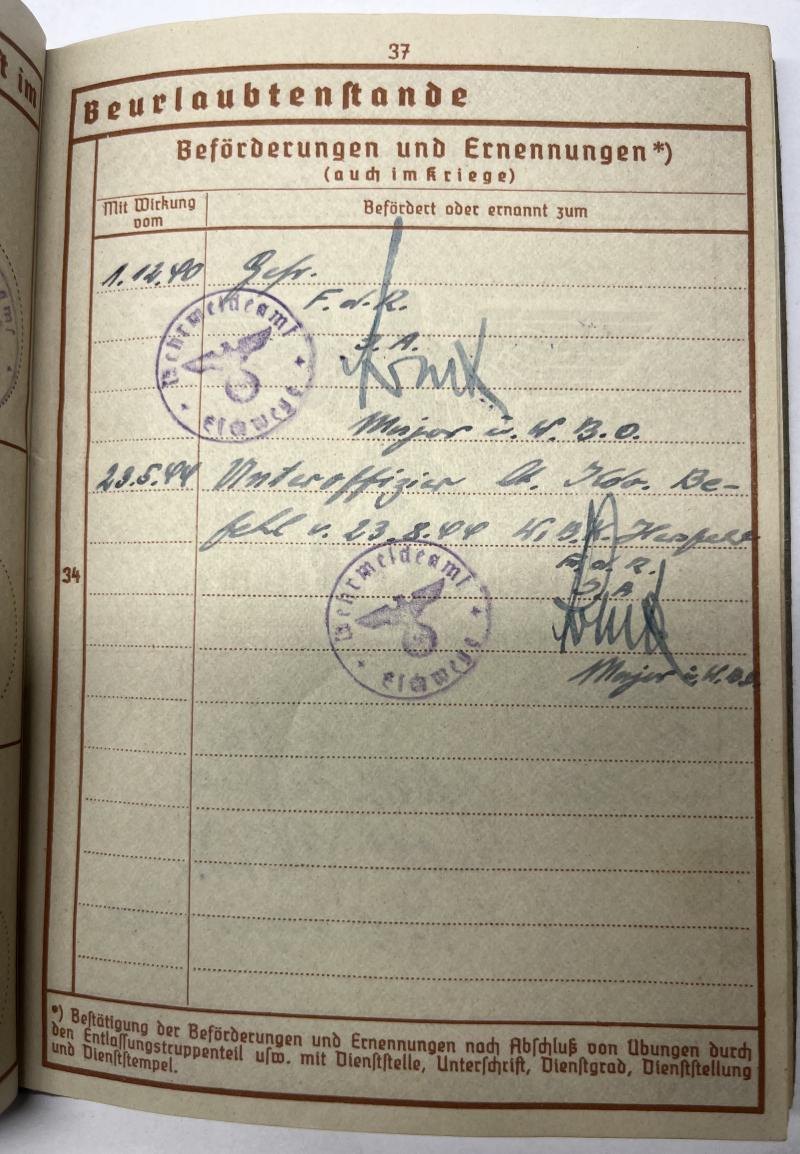 t im
37
Beurlaubtenstande
Beförderungen und Ernennungen*)
(auch im Kriege)
Mit Wirkung vom
Befördert oder ernannt zum
1.12.40 Gefr.
F. d. R.
J. A.
Major u. W. B. O.
Wehrmeldeamt
Eschwege
23.5.44 Unteroffizier lt. Be-
fehl v. 23.8.44 W. B. K.
F. d. R.
J. A
Major u. W. B. O.
Wehrmeldeamt
Eschwege
34
*) Bestätigung der Beförderungen und Ernennungen nach Abschluß von Übungen durch
den Entlassungstruppenteil usw. mit Dienststelle, Unterschrift, Dienstgrad, Dienststellung
und Dienststempel.